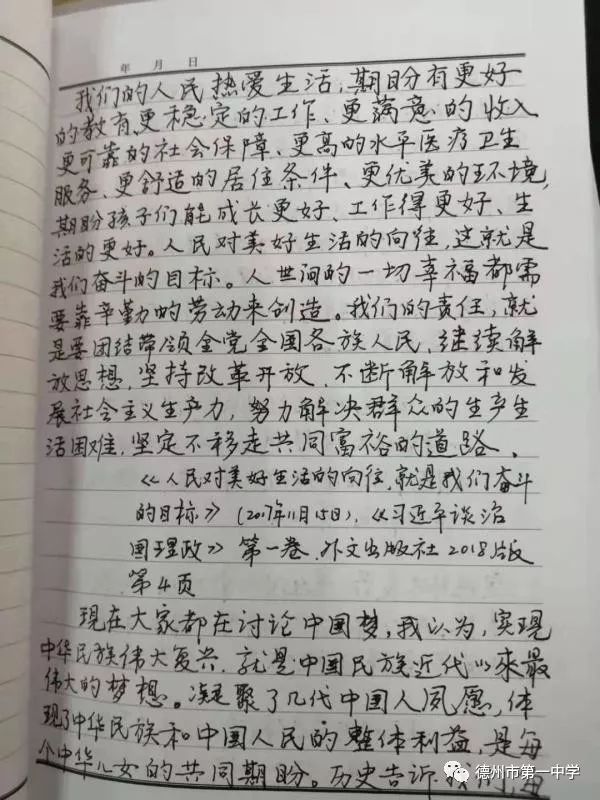 年 月 日
我们的人民热爱生活,期盼有更好
的教育、更稳定的工作、更满意的收入
更可靠的社会保障、更高的水平医疗卫生
服务、更舒适的居住条件、更优美的环境,
期盼孩子们能成长更好、工作得更好、生
活的更好。人民对美好生活的向往,这就是
我们奋斗的目标。人世间的一切幸福都需
要靠辛勤的劳动来创造。我们的责任,就
是要团结带领全党全国各族人民,继续解
放思想,坚持改革开放,不断解放和发
展社会主义生产力,努力解决群众的生产生
活困难,坚定不移走共同富裕的道路.
《人民对美好生活的向往,就是我们奋斗
的目标》(2017年11月15日),《习近平谈治
国理政》第一卷.外文出版社2018版
第4页
现在大家都在讨论中国梦,我以为,实现
中华民族伟大复兴,就是中国民族近代以来最
伟大的梦想。凝聚了几代中国人夙愿,体
现了中华民族和中国人民的整体利益,是每
个中华儿女的共同期盼。历史告诉我们,每
德州市第一中学